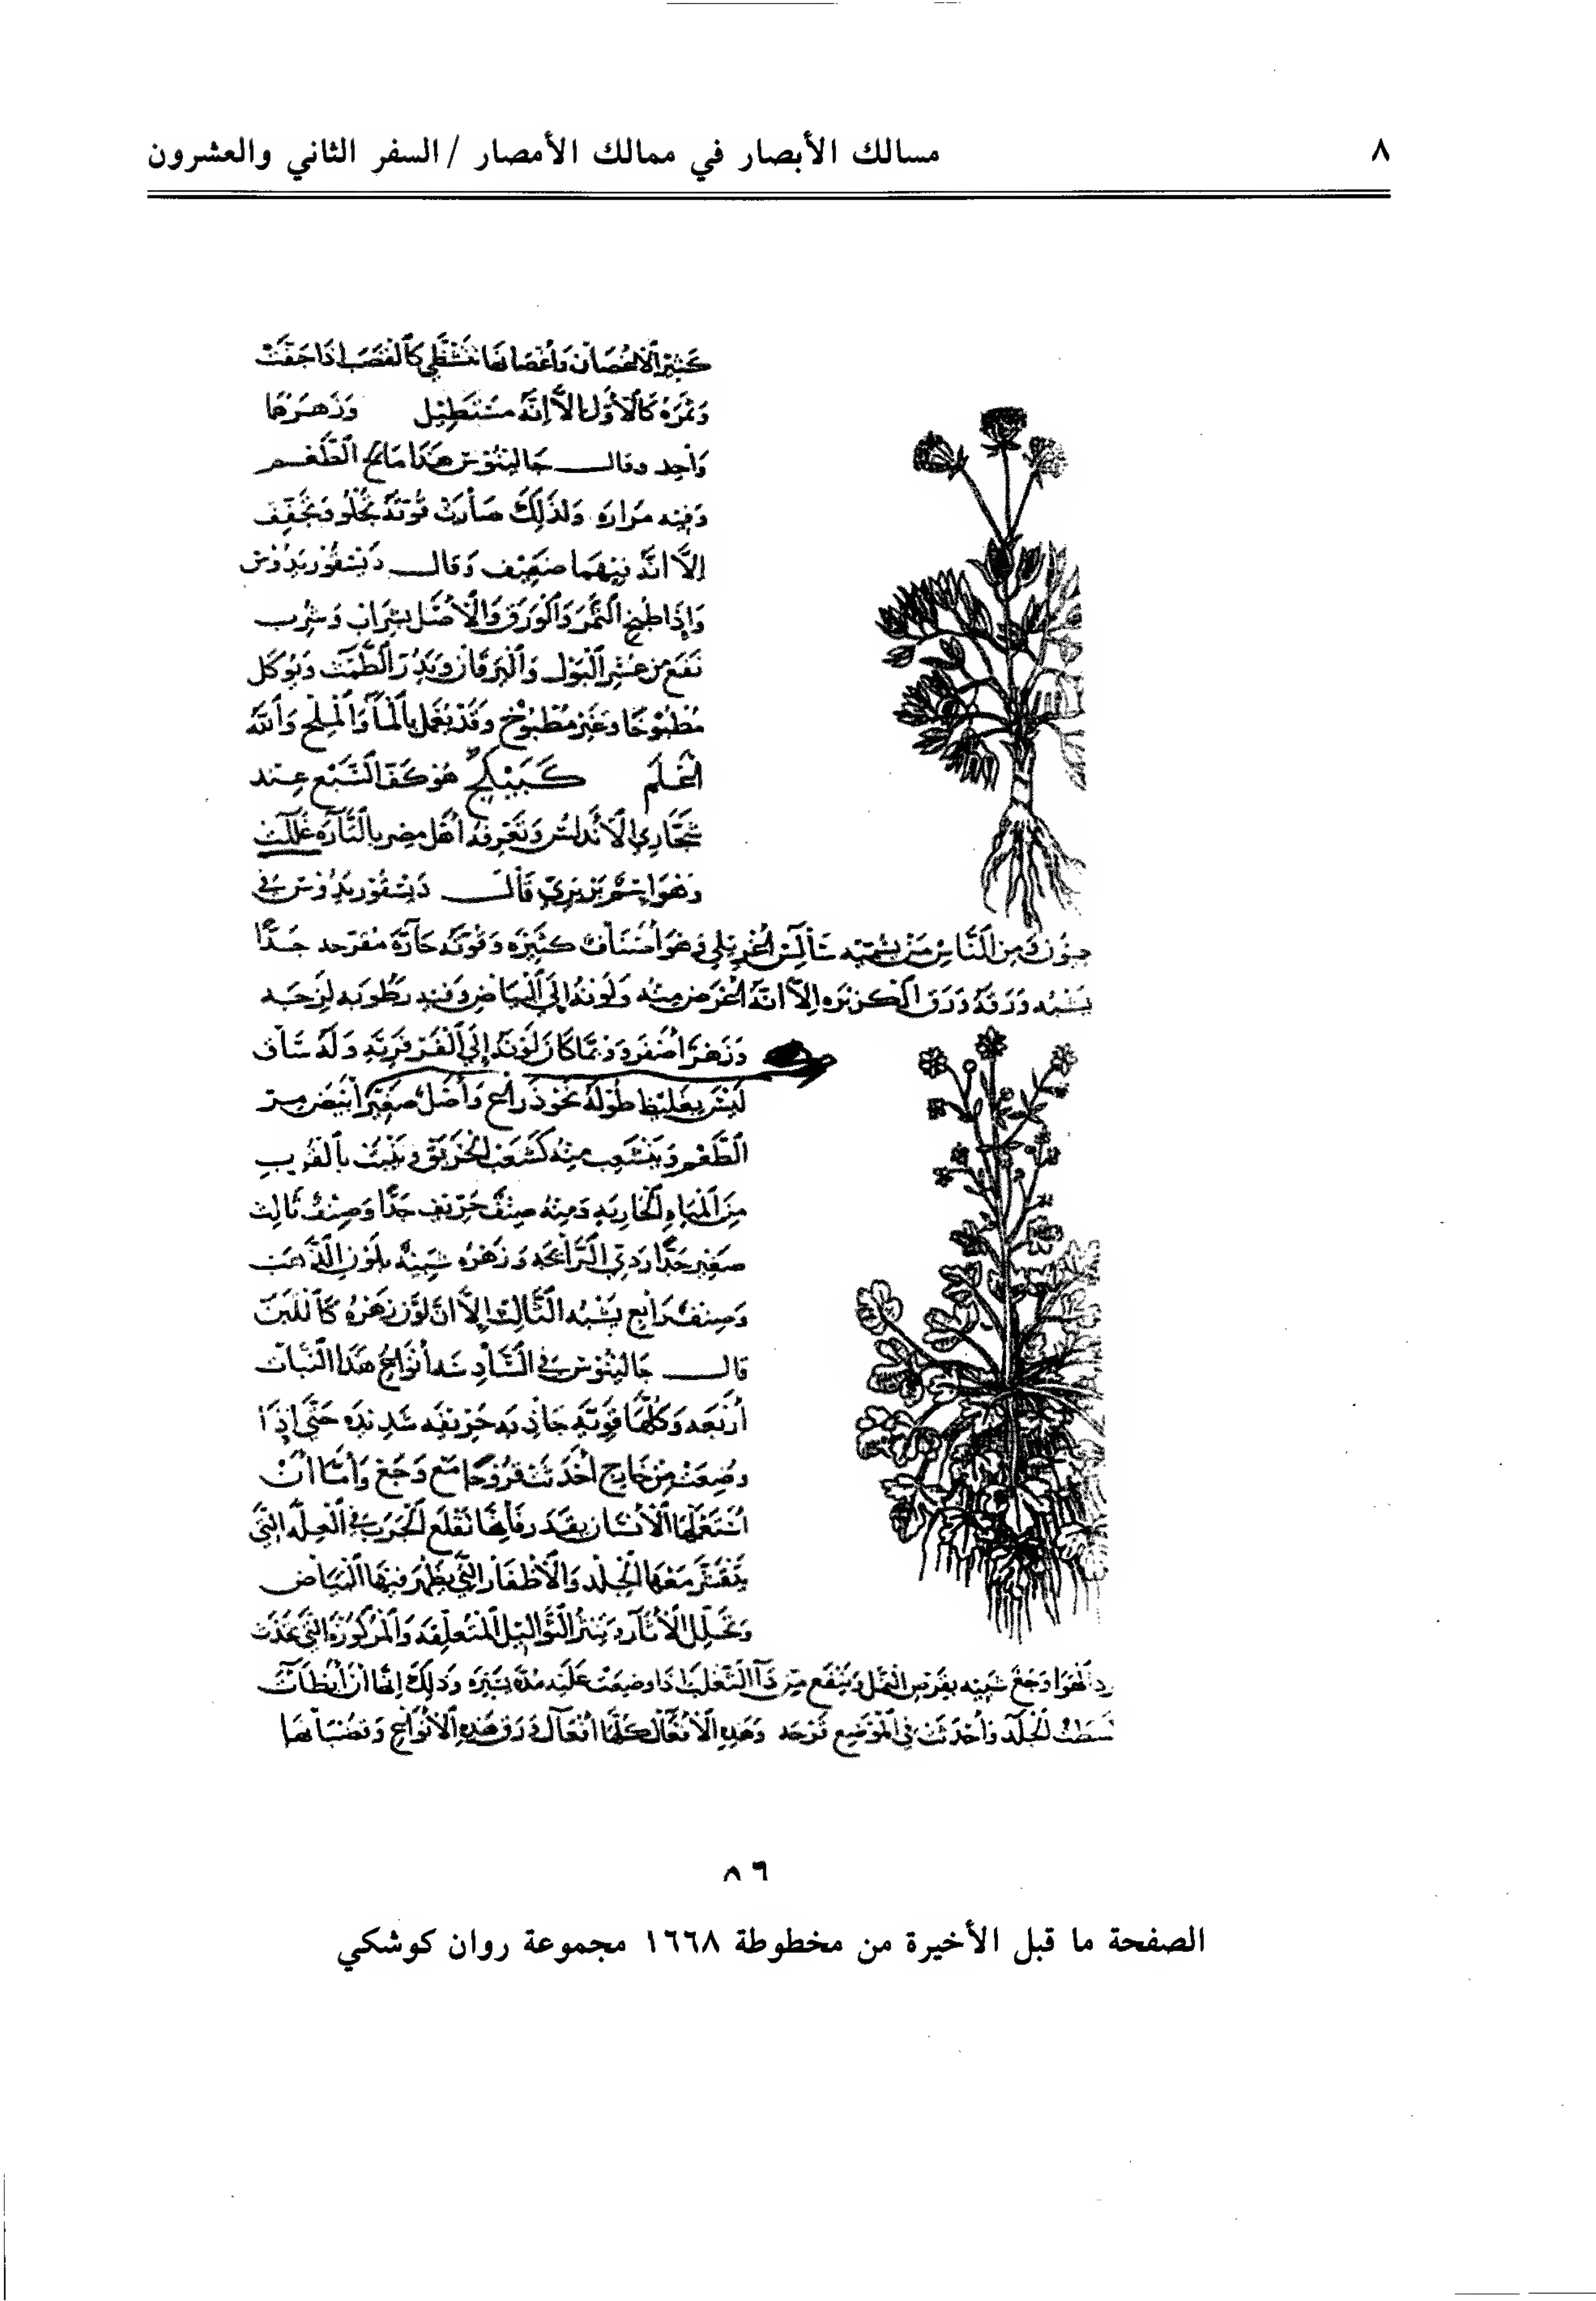 ٨
مسالك الأبصار في ممالك الأمصار / السفر الثاني والعشرون
كثير الأغصان وأغصانها تتشظى كالقصب إذا جفت
وثمره كالأول إلا أنه مستطيل وزهرها
واحد وقال جالينوس هذا مالح الطعم
وفيه مرارة ولذلك صارت قوته تجلو وتجفف
إلا أنه فيهما ضعيف وقال ديسقوريدوس
وإذا طبخ الثمر والورق والأصل بشراب وشرب
نفع من عسر البول واليرقان ويدر الطمث ويؤكل
مطبوخا وغير مطبوخ وقد يعمل بالماء والملح والله
أعلم كبيكج هو كف السبع عند
شجاري الأندلس وتعرفه أهل مصر بالتاره غللت
وهو اسم بربري قال ديسقوريدوس في
ومن الناس من يسميه سالس اغريلي وهو أصناف كثيرة وقوته حارة مقرحه جدا
يشبه ورقه ورق الكزبره إلا أنه أعرض منه ولونه إلى البياض وفيه رطوبه لزجه
وزهر أصفر وربما كان لونه إلى الفرفرية وله ساق
ليس بغليظ طوله نحو ذراع وأصل صغير أبيض مر
الطعم ويتشعب منه كشعب الخربق وينبت بالقرب
من المياه الجاريه ومنه صنف حريف جدا وصنف ثالث
صغير جدا ردي الرائحه وزهره شبيه بلون الذهب
وصنف رابع يشبه الثالث إلا ان لون زهره كاللبن
قال جالينوس في السادسه أنواع هذا النبات
أربعه وكلها قويه حاده حريفه شديده حتى إذا
وضعت من خارج أحدثت قروحا مع وجع وأما ان
استعملها الأنسان بقدر فأنها تقلع الجرب في العله التي
يتقشر معها الجلد والأظفار التي يظهر فيها البياض
وتحلل الأثار وتنثر الثواليل المتعلقه والمركوزه التي تحدث
الهوا وجع شبيه بقرص النمل وينفع من داء الثعلب اذا وضعت عليه مدة يسيره وذلك انها ان أبطات
الجلد وأحدثت في الموضع قرحه وهذه الأفعال كلها أفعال ورق هذه الأنواع وقضبانها
٨٦
الصفحة ما قبل الأخيرة من مخطوطة ١٦٦٨ مجموعة روان كوشكي